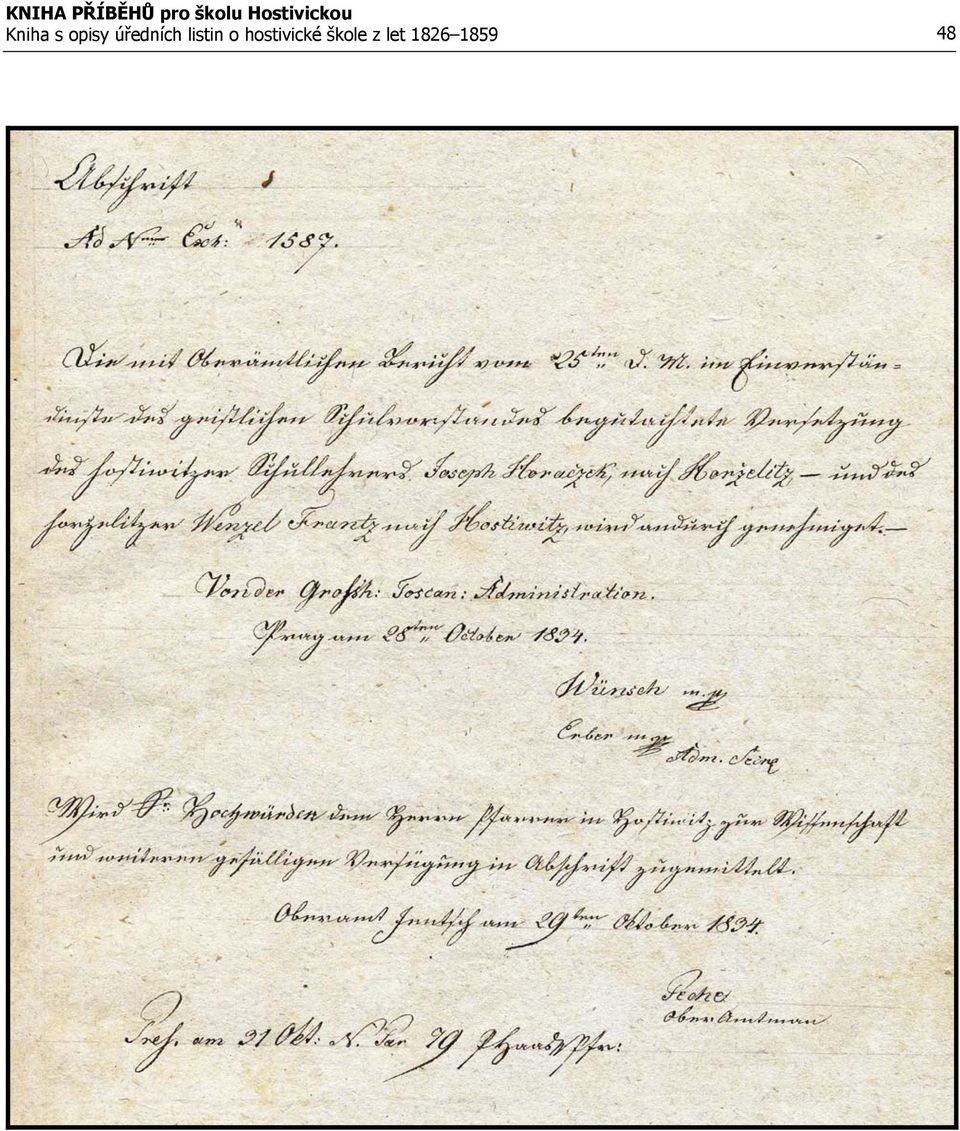 KNIHA PŘÍBĚHŮ pro školu Hostivickou
Kniha s opisy úředních listin o hostivické škole z let 1826–1859 48
Abschrift
Ad Num Exh: 1587.
Die mit Oberämtlichen Bericht vom 25ten d. M. im Einverstän=
dniste des geistlichen Schulvorstandes begutachtete Versetzung
des hostiwitzer Schullehrers Joseph Horaczek, nach Horzelitz, – und des
horzelitzer Wenzel Frantz nach Hostiwitz, wird andurch genehmiget. –
Von der Grossh: Toscan: Administration.
Prag am 28ten October 1834.
Wünsch m. p.
Erber m. p.
Adm.
Wird Sr. Hochwürden dem Herrn Pfarrer in Hostiwitz zur Wissenschaft
und weiteren gefälligen Verfügung in Abschrift zugemittelt.
Oberamt Jentsch am 29ten Oktober 1834.
Peche
Ober Amtman
Pres. am 31 Okt: N. 79 P Haas Pfr: